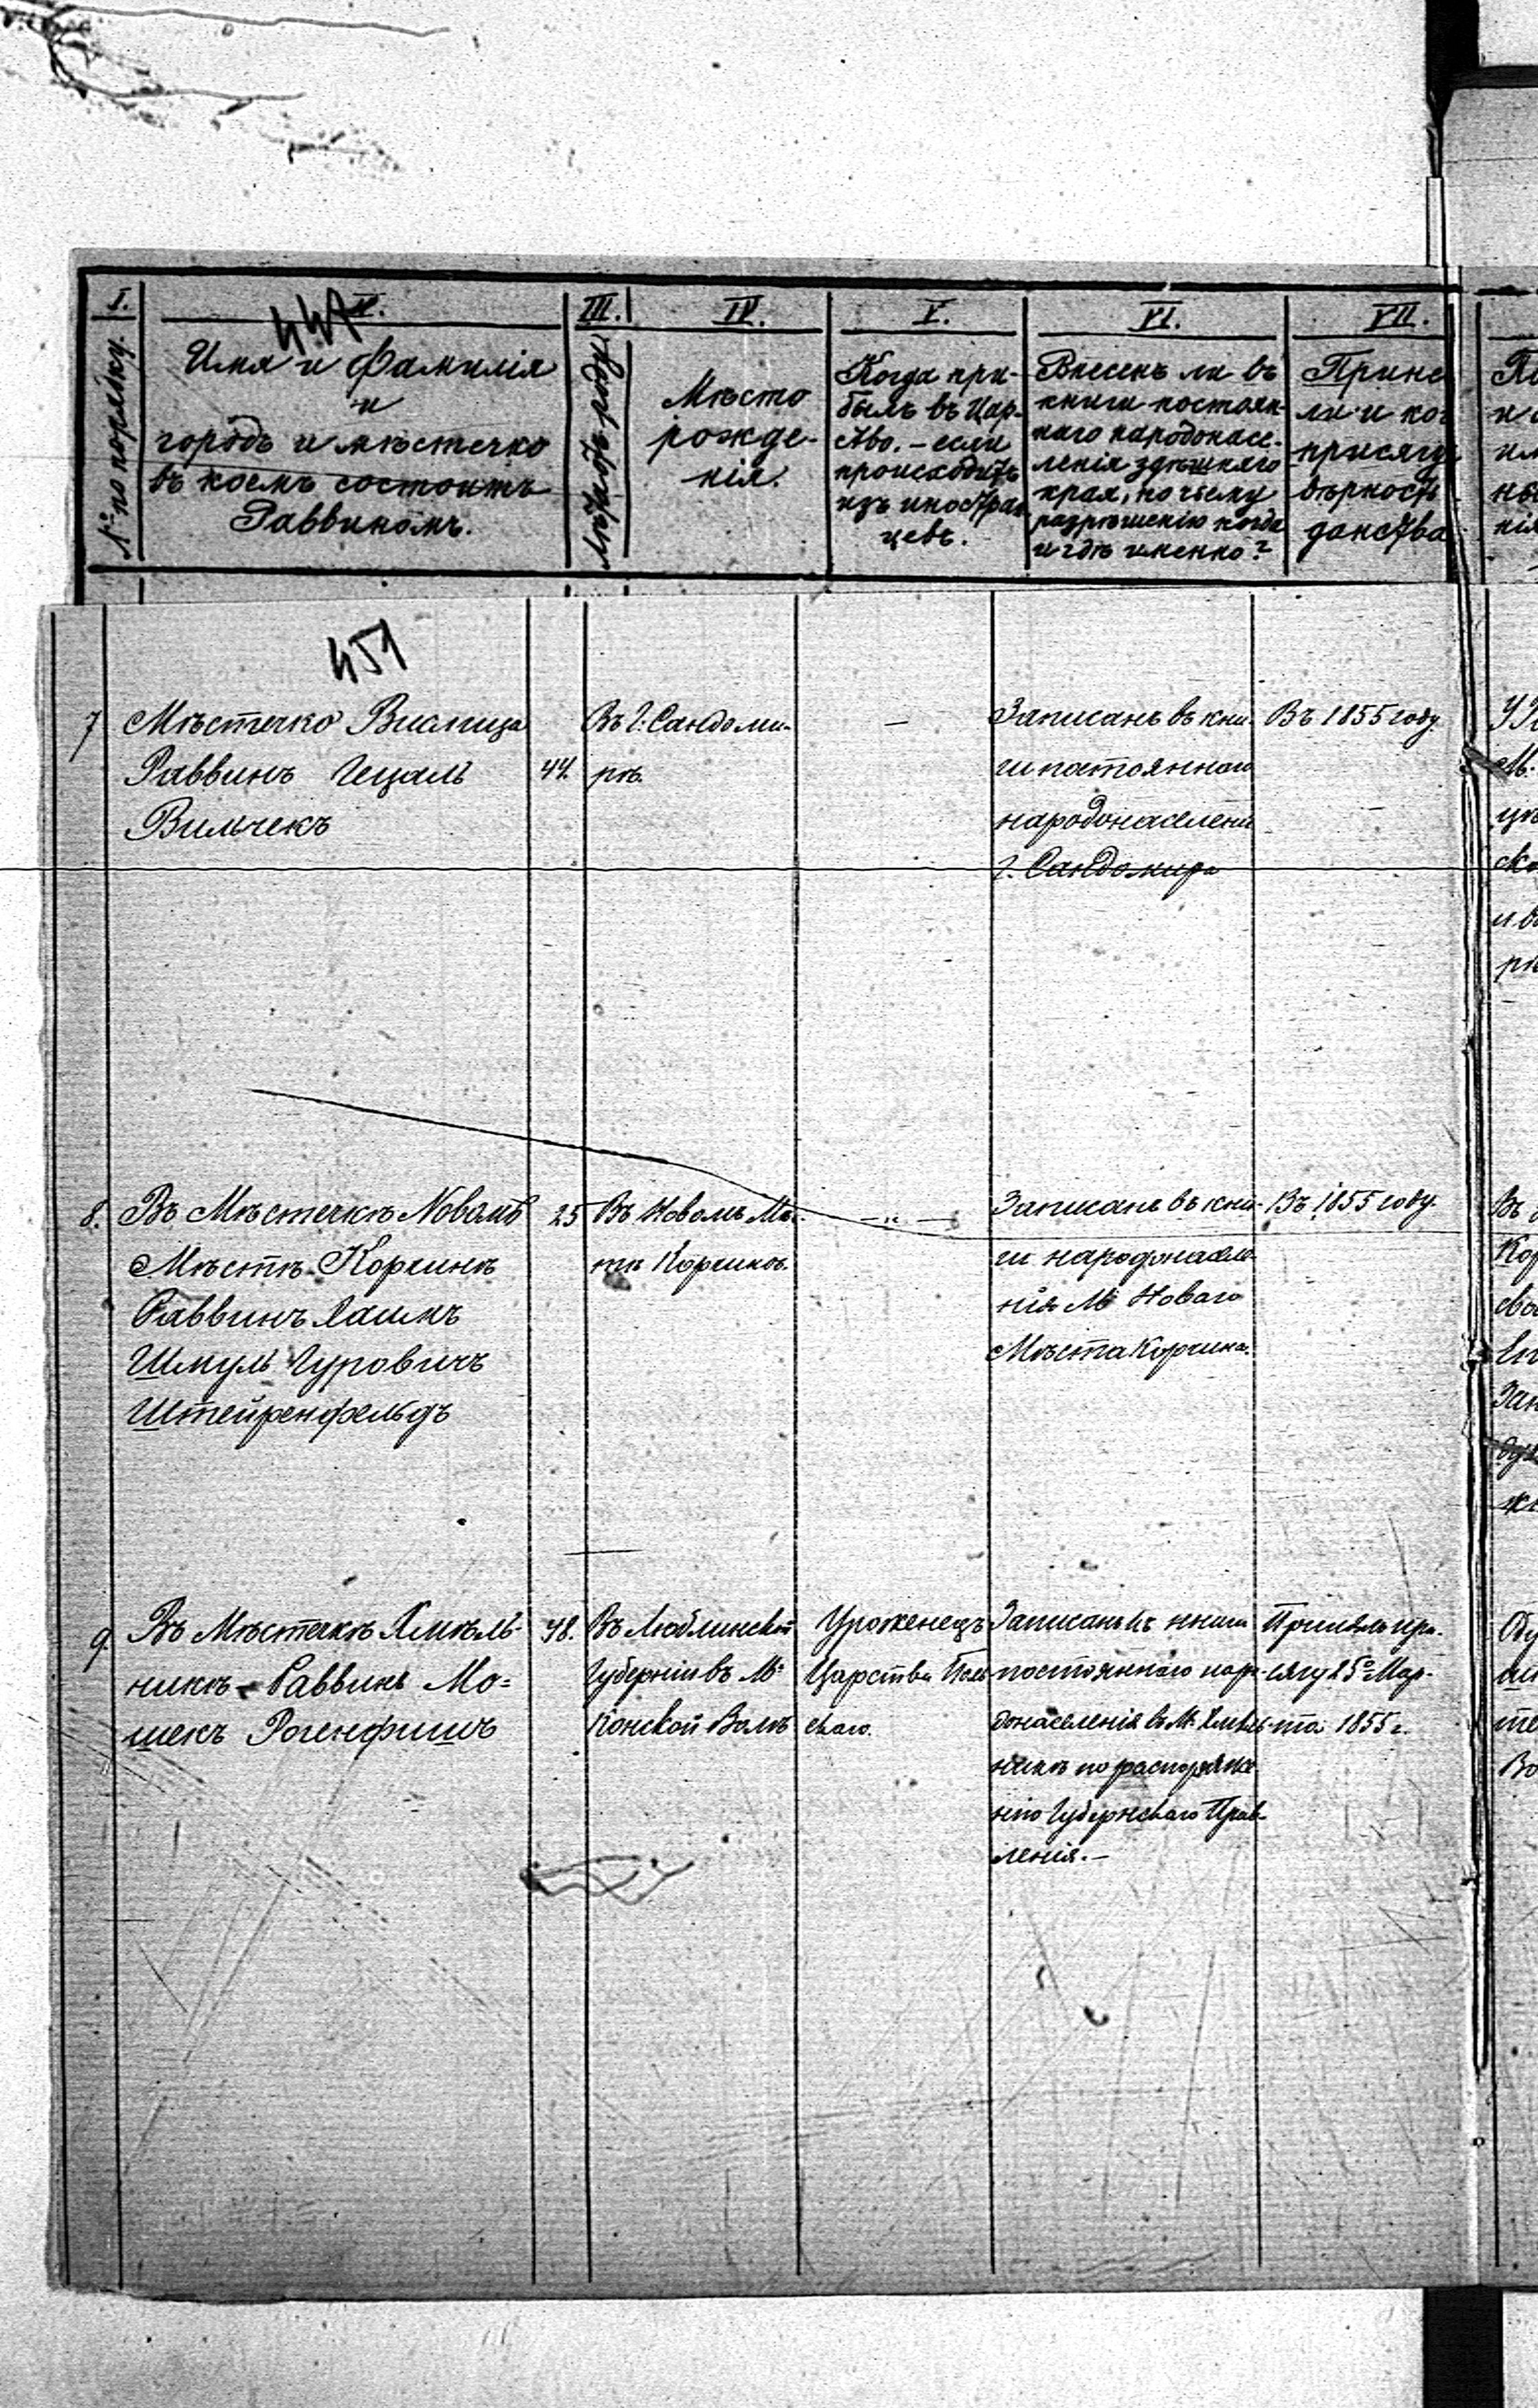 I.
447
II.
III.
IV.
V.
VI.
VII.
№ по порядку.
Имя и Фамилія
и
городъ и мѣстечко
въ коемъ состоитъ
Раввиномъ.
лѣтъ роду
Мѣсто
рожде-
нія.
Когда при-
былъ въ Цар-
ство. – если
происходитъ
изъ иностран
цевъ.
Внесенъ ли въ
книги постоян-
наго народонасе-
ленія здѣшняго
края, по чьему
разрѣшенію когда
и гдѣ именно?
Прине
ли и ко
присягу
вѣрность
данства
451
7
Мѣстечко Вислица
Раввинъ Гецаль
Вильчекъ
44.
Въ Г. Сандоми-
рѣ.
—
Записанъ въ кни-
ги постояннаго
народонаселенія
г. Сандомира
Въ 1855 году.
8.
Въ Мѣстечкѣ Новомъ
Мѣстѣ Корчинѣ
Раввинъ Хаимъ
Шмуль Гуровичъ
Штейренфельдъ
25
Въ Новомъ Мѣ-
тѣ Корчинѣ.
—„—
Записанъ въ кни-
ги народонаселе-
нія М. Новаго
Мѣста Корчина.
Въ 1855 году.
9.
Въ Мѣстечкѣ Хмѣль-
никѣ – Раввинъ Мо=
шекъ Рогенфишъ
48.
Въ Люблинской
Губерніи въ М.
Конской Волѣ
Уроженецъ
Царства Поль-
скаго.
Записанъ въ книги
постояннаго наро-
донаселенія въ М. Хмѣль-
никѣ по распоряже-
нію Губернскаго Прав-
ленія. –
Принялъ при-
сягу 25го Мар-
та 1855 г.